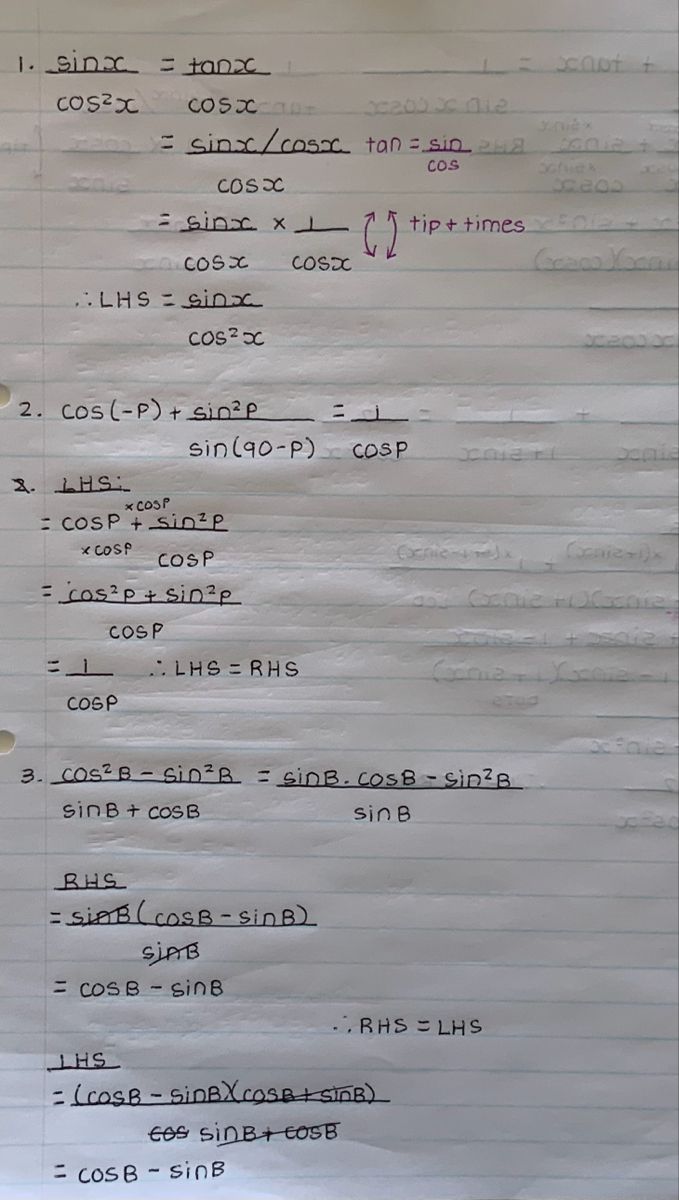 1. sinx/cos²x = tanx/cosx
= sinx/cosx / cosx tan = sin/cos
= sinx/cosx × 1/cosx tip + times
∴ LHS = sinx/cos²x
2. cos(-P) + sin²P/sin(90-P) = 1/cosP
2. LHS:
= cosP ×cosP/×cosP + sin²P/cosP
= cos²P + sin²P/cosP
= 1/cosP ∴ LHS = RHS
3. cos²B - sin²B/sinB + cosB = sinB . cosB - sin²B/sinB
RHS
= sinB(cosB - sinB)/sinB
= cosB - sinB
∴ RHS = LHS
LHS
= (cosB - sinB)(cosB + sinB)/cos sinB + cosB
= cosB - sinB